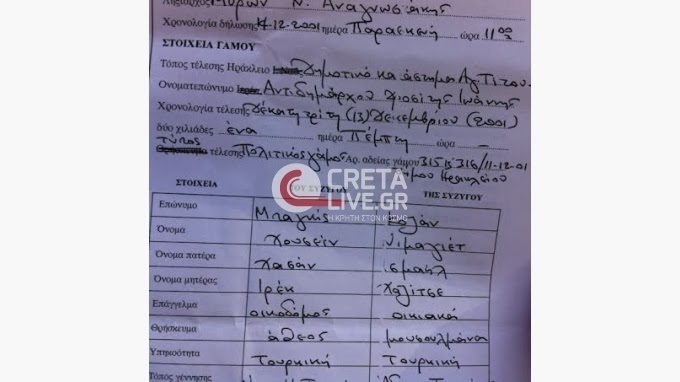 Ληξίαρχος Μύρων Ν. Αναγνωσάκης
Χρονολογία δήλωσης 14-12-2001 ημέρα Παρασκευή ώρα 11 00
ΣΤΟΙΧΕΙΑ ΓΑΜΟΥ
Τόπος τέλεσης Ηράκλειο Δημοτικό κατάστημα Αγ. Τίτου
Ονοματεπώνυμο Αντιδημάρχου Φιοσίτης Ιωάννης
Χρονολογία τέλεσης Δέκατη τρίτη (13) Δεκεμβρίου (2001)
δύο χιλιάδες ένα ημέρα Πέμπτη ώρα –
τύπος
τέλεσης Πολιτικός γάμος Αρ. αδείας γάμου 315 & 316/11-12-01
Δήμου Ηρακλείου
CRETA
LIVE.GR
Η ΚΡΗΤΗ ΣΤΟΝ ΚΟΣΜΟ
ΣΤΟΙΧΕΙΑ ΤΟΥ ΣΥΖΥΓΟΥ ΤΗΣ ΣΥΖΥΓΟΥ
Επώνυμο Μπαγκής
Όνομα Χουσεΐν Νιμαγιέτ
Όνομα πατέρα Χασάν Ισμαήλ
Όνομα μητέρας Ιρέκ Χαλίτσε
Επάγγελμα οικοδόμος οικιακά
Θρήσκευμα άθεος μουσουλμάνα
Υπηκοότητα Τουρκική Τουρκική
Τόπος γέννησης